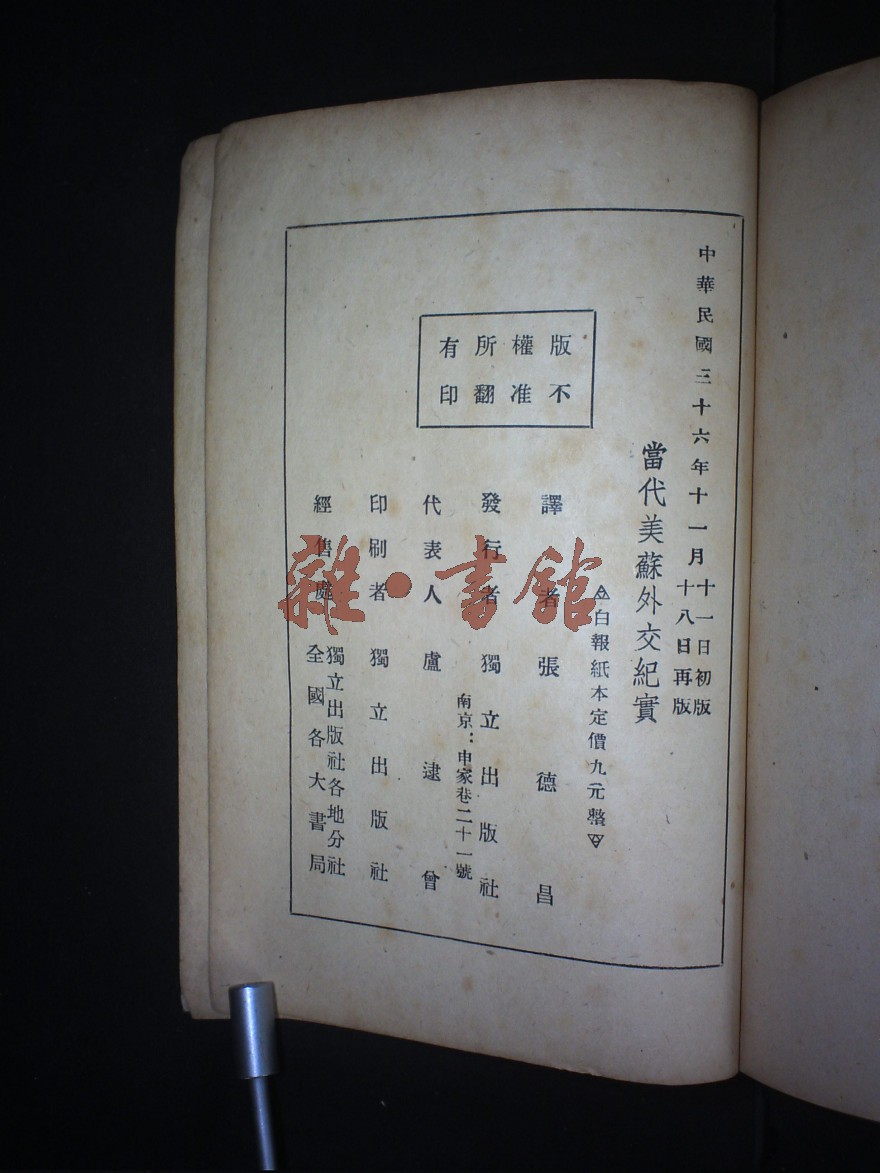 中華民國三十六年十一月十一日初版
十八日再版
當代美蘇外交紀實
白報紙本定價九元整
版權所有
不准翻印
譯者張德昌
發行者獨立出版社
南京：申家巷二十一號
代表人盧逮曾
印刷者獨立出版社
經售處獨立出版社各地分社
全國各大書局
雜·書館